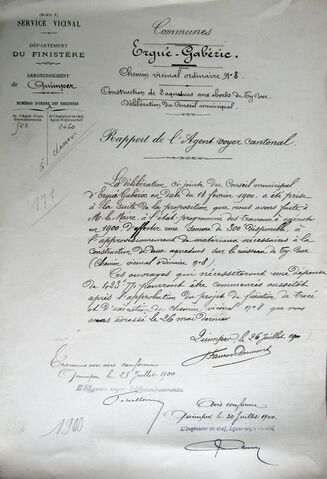 SERVICE VICINAL
DÉPARTEMENT
DU FINISTÈRE
ARRONDISSEMENT
de Quimper
NUMÉROS D'ORDRE DES REGISTRES
de l'Agent-Voyer
Cantonal
de l'Ingénieur en chef,
Agent-Voyer en chef
521
2460
à classer
171
Communes
Ergué-Gabéric
Chemin vicinal ordinaire N° 8
Construction de 2 aqueducs aux abords de
Délibération du Conseil municipal
Rapport de l'Agent voyer cantonal
La délibération ci-jointe du Conseil municipal
d'Ergué-Gabéric en date du 18 février 1900, a été prise
à la suite de la proposition que nous avons faite à
M. le Maire, à l'état programme des travaux à exécuter
en 1900 d'affecter une somme de 500 disponible, à
l'approvisionnement des matériaux nécessaires à la
construction de deux aqueducs sur le ruisseau de
(Chemin vicinal ordinaire N° 8)
Ces ouvrages qui nécessiteront une dépense
de 483f77 pourront être commencés aussitôt
après l'approbation du projet de fixation de tracé
et d'exécution du chemin vicinal n° 8 que nous
avons adressé le 26 mai dernier
Quimper le 26 Juillet 1900
Transmis avis conforme
Quimper le 28 Juillet 1900
L'Agent voyer d'Arrondissement
Avis conforme
Quimper le 30 Juillet 1900.
L'Ingénieur en chef, Agent-voyer en chef
1900